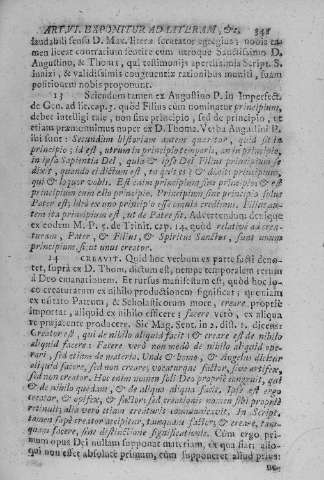 ART.VI. EXPONITUR AD LITERAM, &c. 341
laudabili sensu D. Max. literæ scrutator egregius; nobis ta-
men liceat contrarium sentire cum utroque Sanctissimo D.
Augustino, & Thoma, qui testimonijs apertissimis Script. S.
innixi, & validissimis congruentiæ rationibus muniti, suam
positionem nobis proponunt.
13 Sciendum tamen ex Augustino D. in Imperfect.
de Gen. ad lit. cap. 3. quòd Filius cùm nominatur principium,
debet intelligi tale, non sine principio, sed de principio, ut
etiam præmonuimus nuper ex D. Thoma. Verba Augustini D.
ibi sunt: Secundùm historiam autem quæritur, quid sit in
principio; id est, utrùm in principio temporis, an in principio,
in ipsa Sapientia Dei, quia & ipse Dei Filius principium se
dixit, quando ei dictum est, tu quis es? & dixit principium,
qui & loquor vobis. Est enim principium sine principio, & est
principium cum alio principio. Principium sine principio solus
Pater est; ideò ex uno principio esse omnia credimus. Filius au-
tem ita principium est, ut de Patre sit. Advertendum denique
ex eodem M. P. 5. de Trinit. cap. 14. quòd relativè ad crea-
turam, Pater, & Filius, & Spiritus Sanctus, sunt unum
principium, sicut unus creator.
14 CREAVIT. Quid hoc verbum ex parte facti deno-
tet, suprà ex D. Thom. dictum est, nempe temporalem rerum
à Deo emanationem. Et rursus manifestum est, quòd hoc lo-
co creaturarum ex nihilo productionem significat; quoniam
ex usitato Patrum, & Scholasticorum more, creare propriè
importat, aliquid ex nihilo efficere; facere verò, ex aliquo
re præjacente producere. Sic Mag. Sent. in 2. dist. 1. dicens:
Creator est, qui de nihilo aliquid facit; & creare est de nihilo
aliquid facere: Facere verò non modò de nihilo aliquid ope-
rari, sed etiam de materia. Unde & homo, & Angelus dicitur
aliquid facere, sed non creare; vocaturque factor, sive artifex,
sed non creator. Hoc enim nomen soli Deo propriè congruit, qui
& de nihilo quædam, & de aliquo aliqua facit. Ipse est ergo
creator, & opifex, & factor, sed creationis nomen sibi propriè
retinuit; alia verò etiam creaturis communicavit. In Script.
tamen sæpè creator accipitur, tanquam factor; & creare, tan-
quam facere, sine distinctione significationis. Cùm ergo pri-
mum opus Dei nullam supponat materiam, ex qua fiat: alio-
qui non esset absolutè primum, cùm supponeret aliud prius: